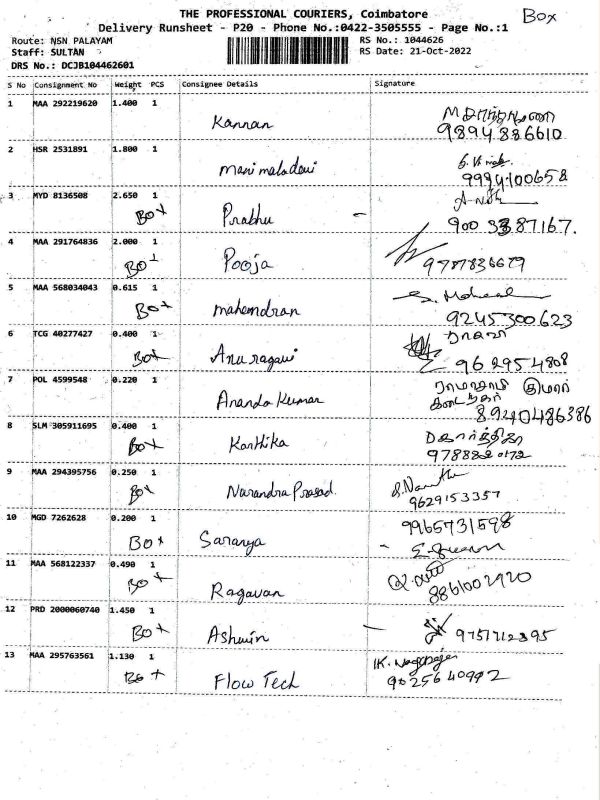 THE PROFESSIONAL COURIERS, Coimbatore
Box
Delivery Runsheet - P20 - Phone No.:0422-3505555 - Page No.:1
Route: NSN PALAYAM
RS No.: 1044626
Staff: SULTAN
RS Date: 21-Oct-2022
DRS No.: DCJB104462601
S No Consignment No Weight PCS Consignee Details Signature
1 MAA 292219620 1.400 1
Kannan
9894886610
2 HSR 2531891 1.800 1
manimaladevi
9994100658
3 MYD 8136508 2.650 1
Box Prabhu
900 3387167.
4 MAA 291764836 2.000 1
Box Pooja
9787836679
5 MAA 568034043 0.615 1
Box mahendran
9245300623
6 TCG 40277427 0.400 1
Box Anuragavi
96 2954808
7 POL 4599548 0.220 1
Ananda Kumar
குமார்
8940486386
8 SLM 305911695 0.400 1
Box Karthika
கார்த்திகா
9 MAA 294395756 0.250 1
Box Narandra Prasad.
9629153357
10 MGD 7262628 0.200 1
Box Saranya
9965731598
11 MAA 568122337 0.490 1
Box Ragavan
8861002920
12 PRD 2000060740 1.450 1
Box Ashwin
9757712395
13 MAA 295763561 1.130 1
Box Flow Tech
K. Nagarajan
9025640992